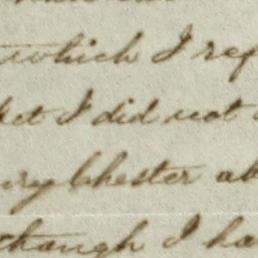 which I ref
I did not
ry Chester ab
though I ha